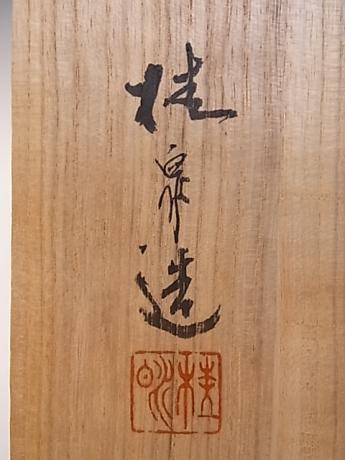 桂泉造
桂泉